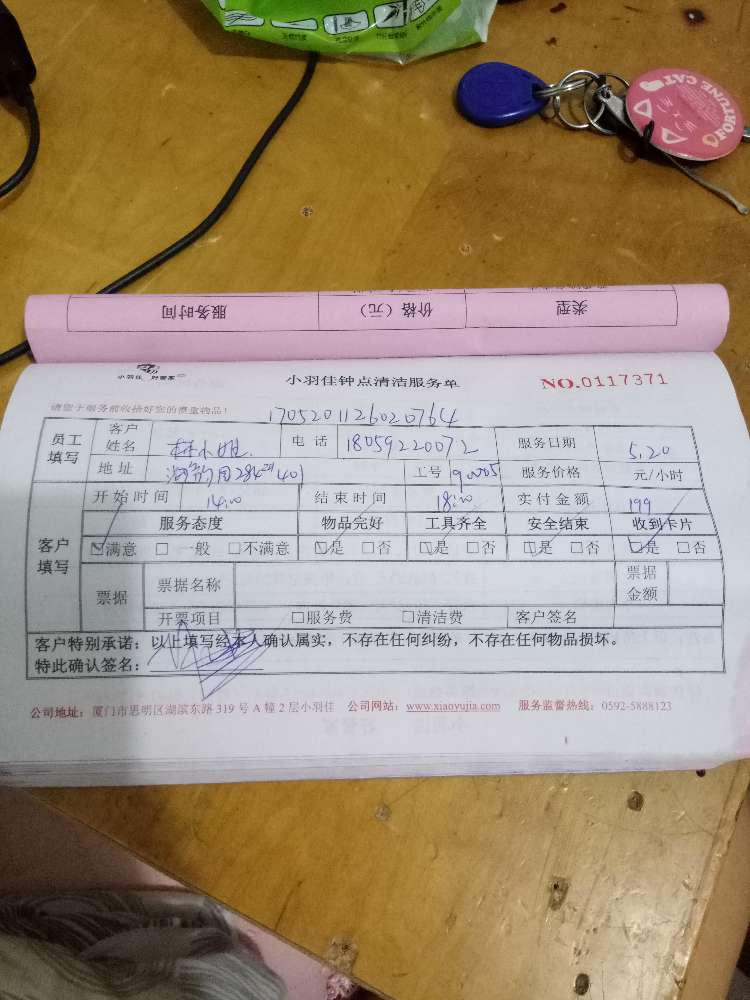 FORTUNE CAT
类型 价格（元） 服务时间
小羽佳 好管家
小羽佳钟点清洁服务单 NO.0117371
请您于服务前收拾好您的贵重物品！
1705201126020764
员工填写 客户姓名 林小姐 电话 18059220072 服务日期 5.20
地址 284 401 工号 服务价格 元/小时
客户填写 开始时间 14:00 结束时间 18:00 实付金额 199
服务态度 物品完好 工具齐全 安全结束 收到卡片
☑满意 □一般 □不满意 ☑是 □否 ☑是 □否 ☑是 □否 ☑是 □否
票据 票据名称 票据金额
开票项目 □服务费 □清洁费 客户签名
客户特别承诺：以上填写经本人确认属实，不存在任何纠纷，不存在任何物品损坏。
特此确认签名：
公司地址：厦门市思明区湖滨东路 319 号 A 幢 2 层小羽佳 公司网站：www.xiaoyujia.com 服务监督热线：0592-5888123